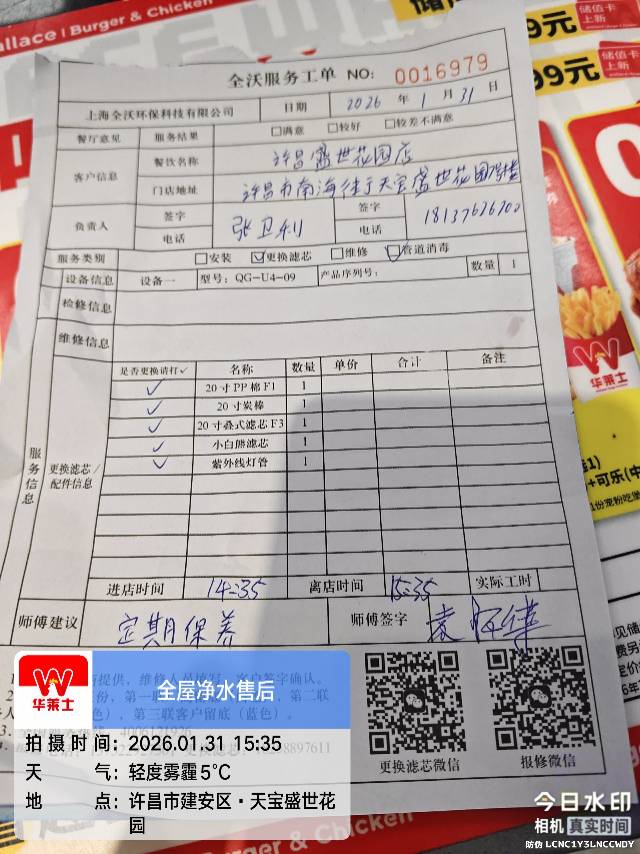 allace | Burger & Chicken
储值卡
上新
9元
储值卡
上新
99元
全沃服务工单 NO: 0016979
上海全沃环保科技有限公司 日期 2026 年 1 月 31 日
餐厅意见 服务结果 □满意 □较好 □较差不满意
客户信息 餐饮名称 许昌盛世花园店
门店地址 许昌市南海街于天宝盛世花园
负责人 签字 张卫利 签字
电话 电话 18137626700
服务类别 □安装 ☑更换滤芯 □维修 ☑管道消毒
设备信息 设备一 型号: QG-U4-09 产品序列号: 数量 1
检修信息
维修信息
服务信息
更换滤芯/配件信息
是否更换请打✓ 名称 数量 单价 合计 备注
✓ 20寸PP棉F1 1
✓ 20寸炭棒 1
✓ 20寸叠式滤芯F3 1
✓ 小白熊滤芯 1
✓ 紫外线灯管 1
进店时间 14:35 离店时间 15:35 实际工时
师傅建议 定期保养 师傅签字
提供,维修人员填写,客户签字确认。
份,第一联
,第二联
色),第三联客户留底(蓝色)。
4006121926
8897611
更换滤芯微信 报修微信
华莱士
全屋净水售后
拍摄时间:2026.01.31 15:35
天 气:轻度雾霾 5℃
地 点:许昌市建安区·天宝盛世花园
华莱士
+可乐(中
今日水印
相机 真实时间
防伪 LCNC1Y3LNCCWDY
Burger & Chicken